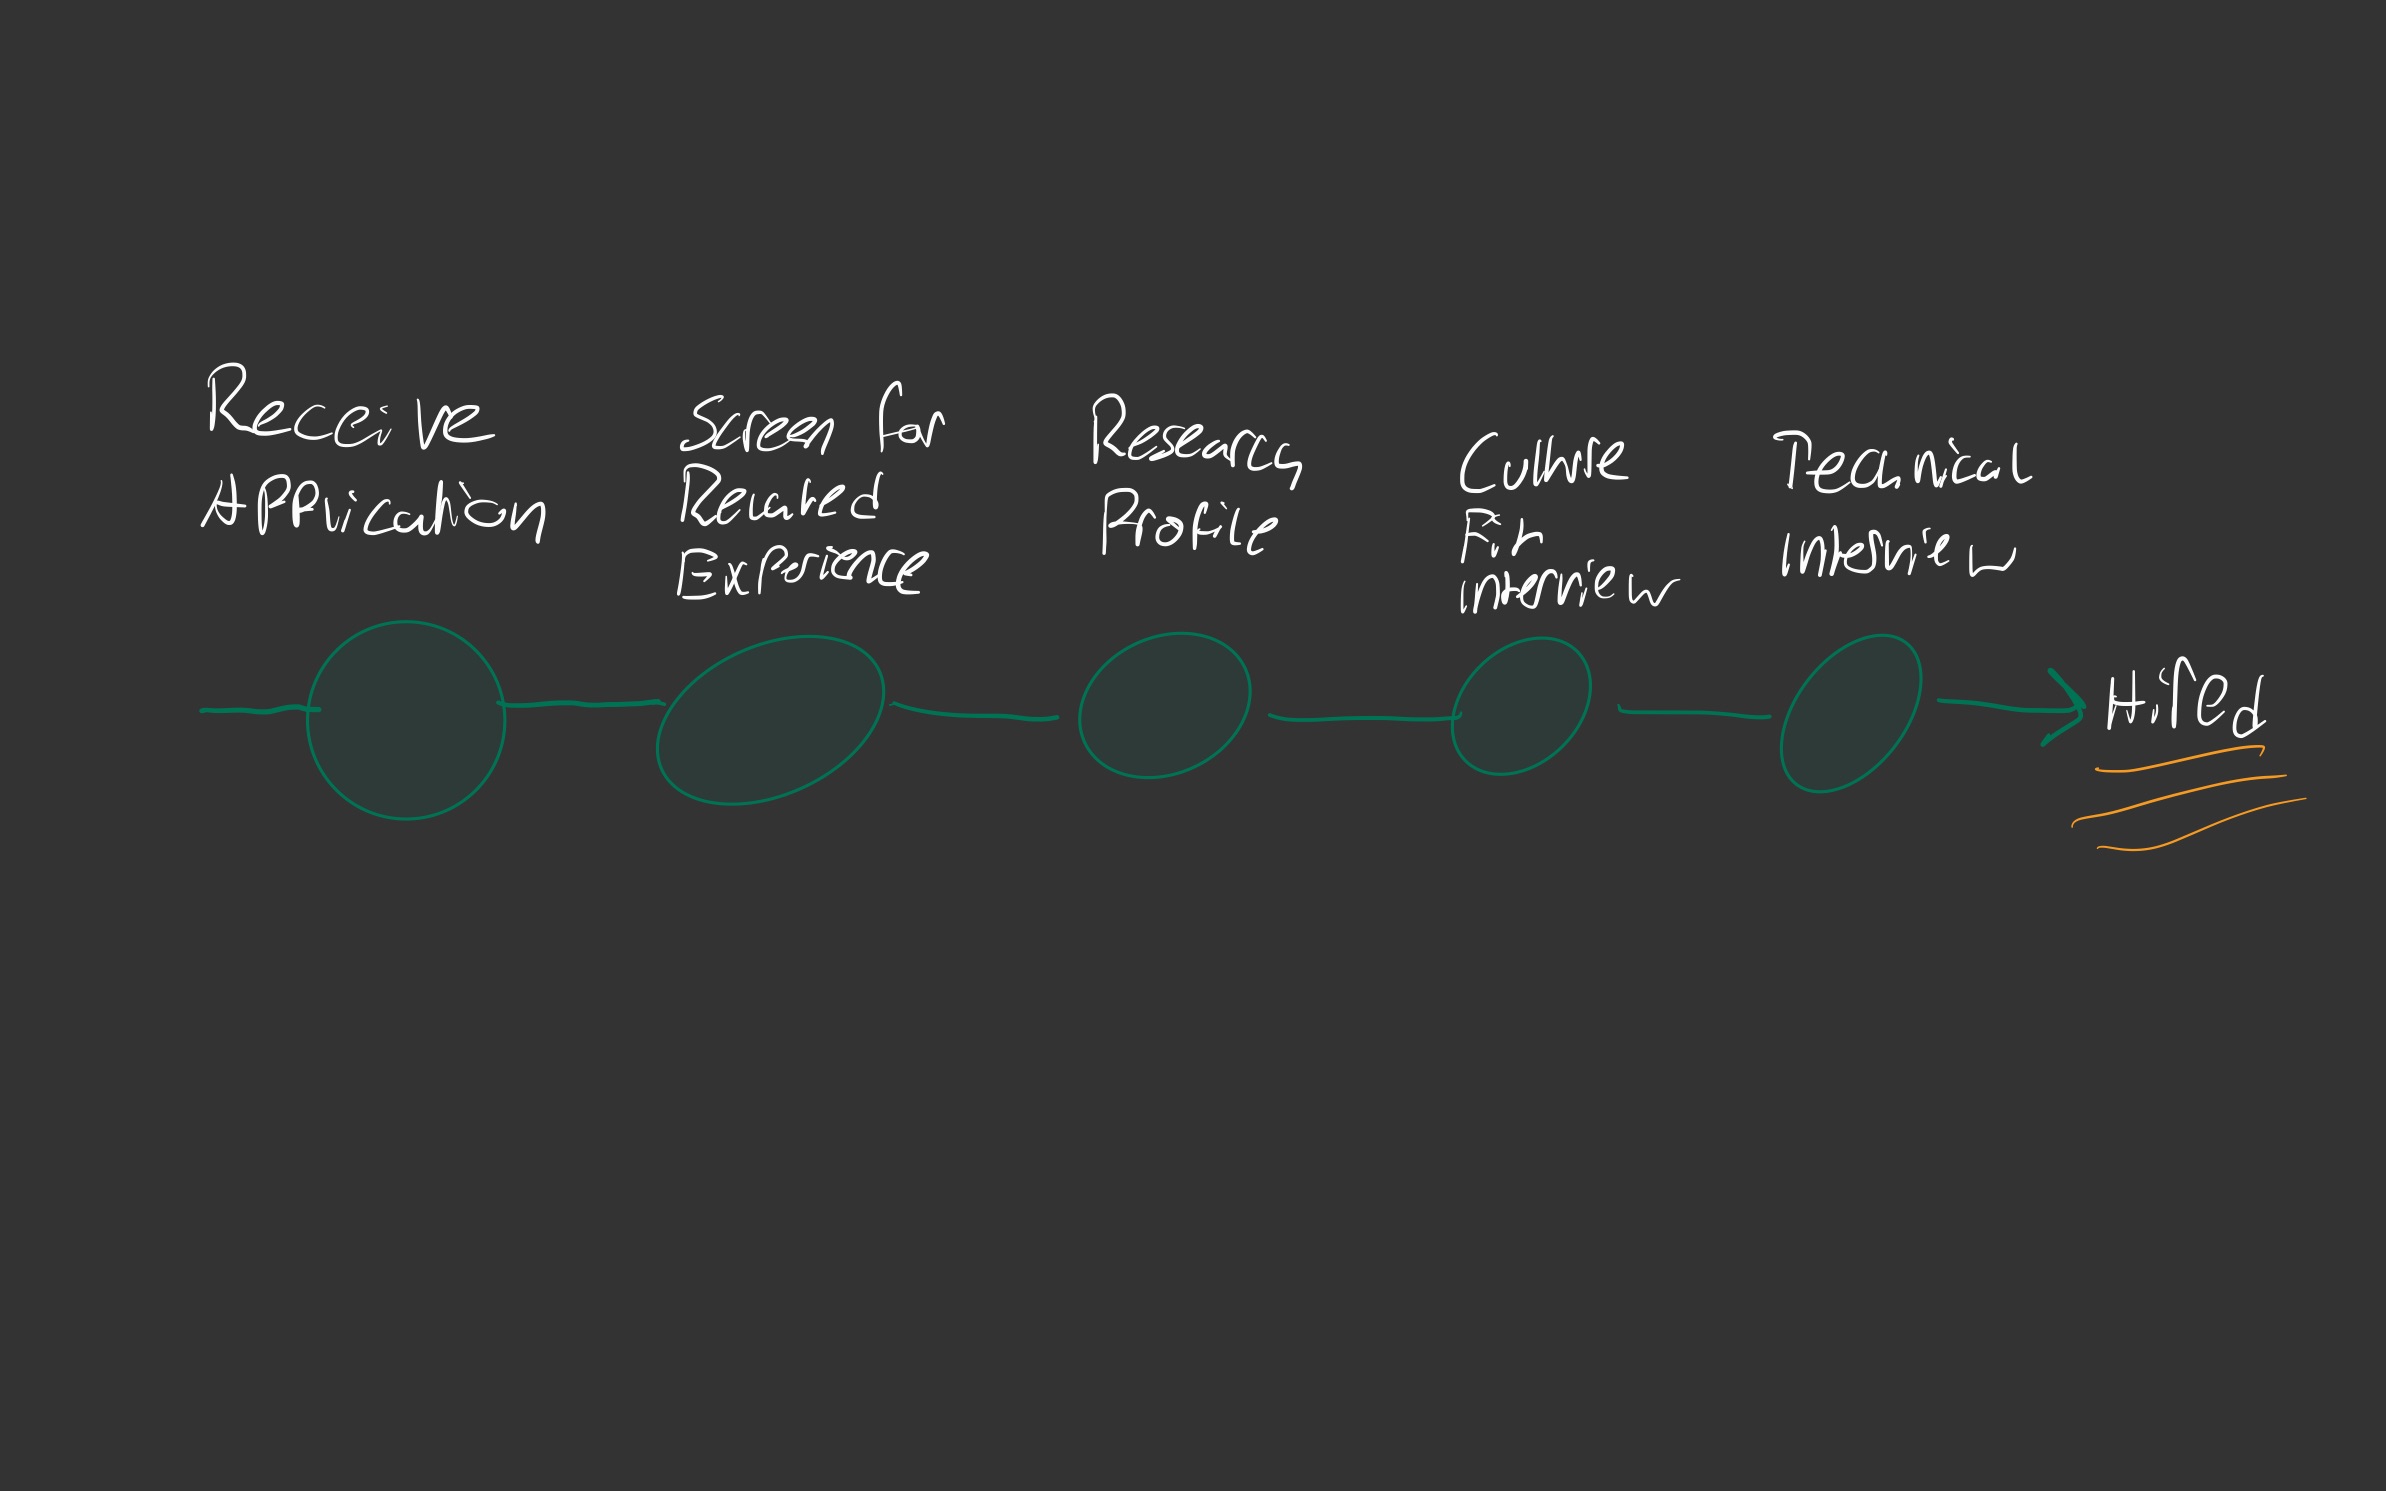 Receive
Application
Screen for
Related
Experience
Research
Profile
Culture
Fit
interview
Technical
interview
Hired